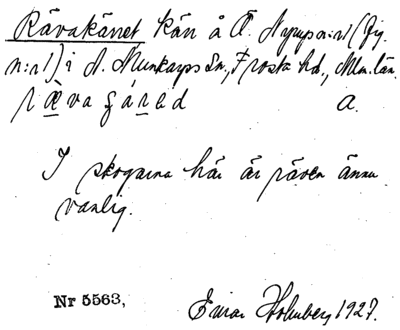 Rävakärret kärr å Ö. Nymp n:r 1 (fig.
n:r 1) i S. Munkarps sn., Frosta hd., Mlm. län.
rævaçäred a.
I skogarna här är räven ännu
vanlig.
Nr 5563,
Einar Holmberg 1927.